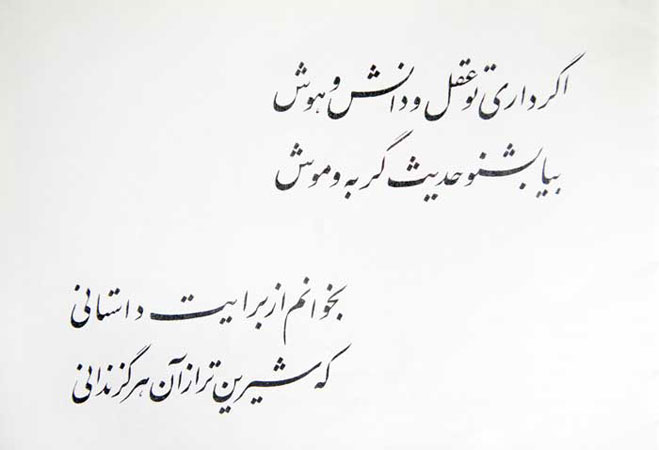 اگر داری تو عقل و دانش و هوش
بیا بشنو حدیث گربه و موش
بخوانم از برایت داستانی
که شیرین تر از آن هرگز ندانی